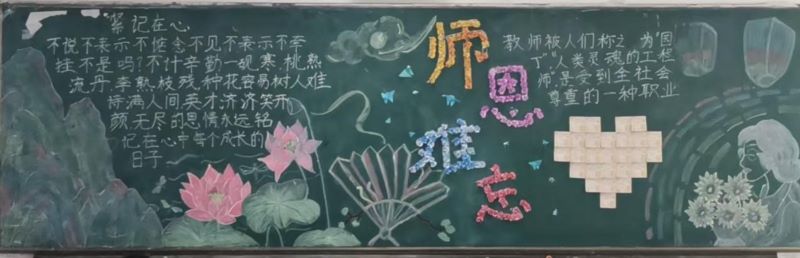 紧记在心
不说不表示不惦念不见不表示不牵
挂不是吗?不计辛勤一砚寒桃熟
流丹,李熟枝残,种花容易树人难
待满人间英才济济笑开
颜,无尽的思情永远铭
记在心中每个成长的
日子
师恩难忘
教师被人们称之为"园
丁""人类灵魂的工程
师"是受到全社会
尊重的一种职业